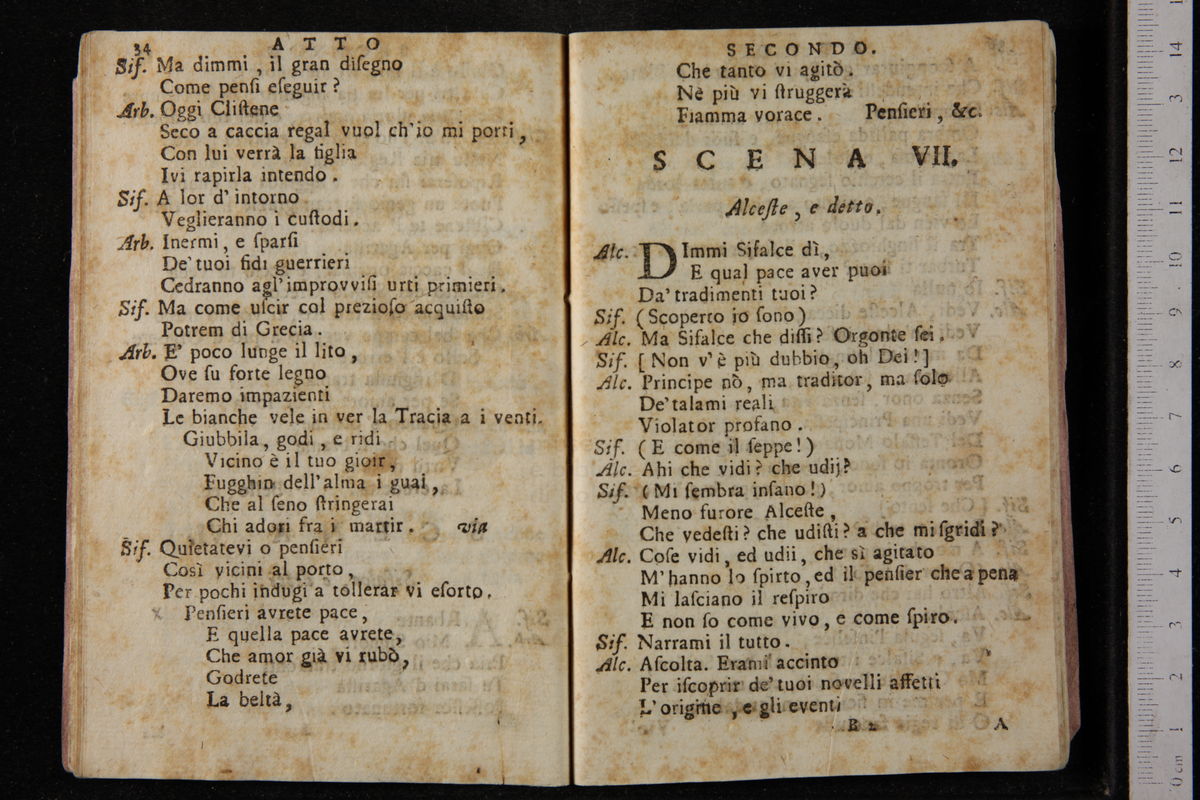 34 ATTO
Sif. Ma dimmi , il gran diſegno
Come penſi eſeguir ?
Arb. Oggi Cliſtene
Seco a caccia regal vuol ch'io mi porti ,
Con lui verrà la figlia
Ivi rapirla intendo .
Sif. A lor d' intorno
Veglieranno i cuſtodi .
Arb. Inermi , e ſparſi
De' tuoi fidi guerrieri
Cedranno agl' improvviſi urti primieri .
Sif. Ma come uſcir col prezioſo acquiſto
Potrem di Grecia .
Arb. E' poco lunge il lito ,
Ove ſu forte legno
Daremo impazienti
Le bianche vele in ver la Tracia a i venti.
Giubbila , godi , e ridi
Vicino è il tuo gioir ,
Fugghin dell' alma i guai ,
Che al ſeno ſtringerai
Chi adori fra i martir . via
Sif. Quietatevi o penſieri
Così vicini al porto ,
Per pochi indugi a tollerar vi eſorto .
Penſieri avrete pace ,
E quella pace avrete ,
Che amor già vi rubò ,
Godrete
La beltà ,
SECONDO.
Che tanto vi agitò .
Nè più vi ſtruggerà
Fiamma vorace . Penſieri , &c.
SCENA VII.
Alceſte , e detto .
Alc. DImmi Sifalce dì ,
E qual pace aver puoi
Da' tradimenti tuoi ?
Sif. (Scoperto io ſono)
Alc. Ma Sifalce che diſſi ? Orgonte ſei .
Sif. [ Non v' è più dubbio , oh Dei ! ]
Alc. Principe nò , ma traditor , ma ſolo
De' talami reali
Violator profano .
Sif. ( E come il ſeppe ! )
Alc. Ahi che vidi ? che udij ?
Sif. ( Mi ſembra inſano ! )
Meno furore Alceſte ,
Che vedeſti ? che udiſti ? a che mi ſgridi ?
Alc. Coſe vidi , ed udii , che sì agitato
M' hanno lo ſpirto , ed il penſier che a pena
Mi laſciano il reſpiro
E non ſo come vivo , e come ſpiro .
Sif. Narrami il tutto .
Alc. Aſcolta . Erami accinto
Per iſcoprir de' tuoi novelli affetti
L' origine , e gli eventi
B 2 A